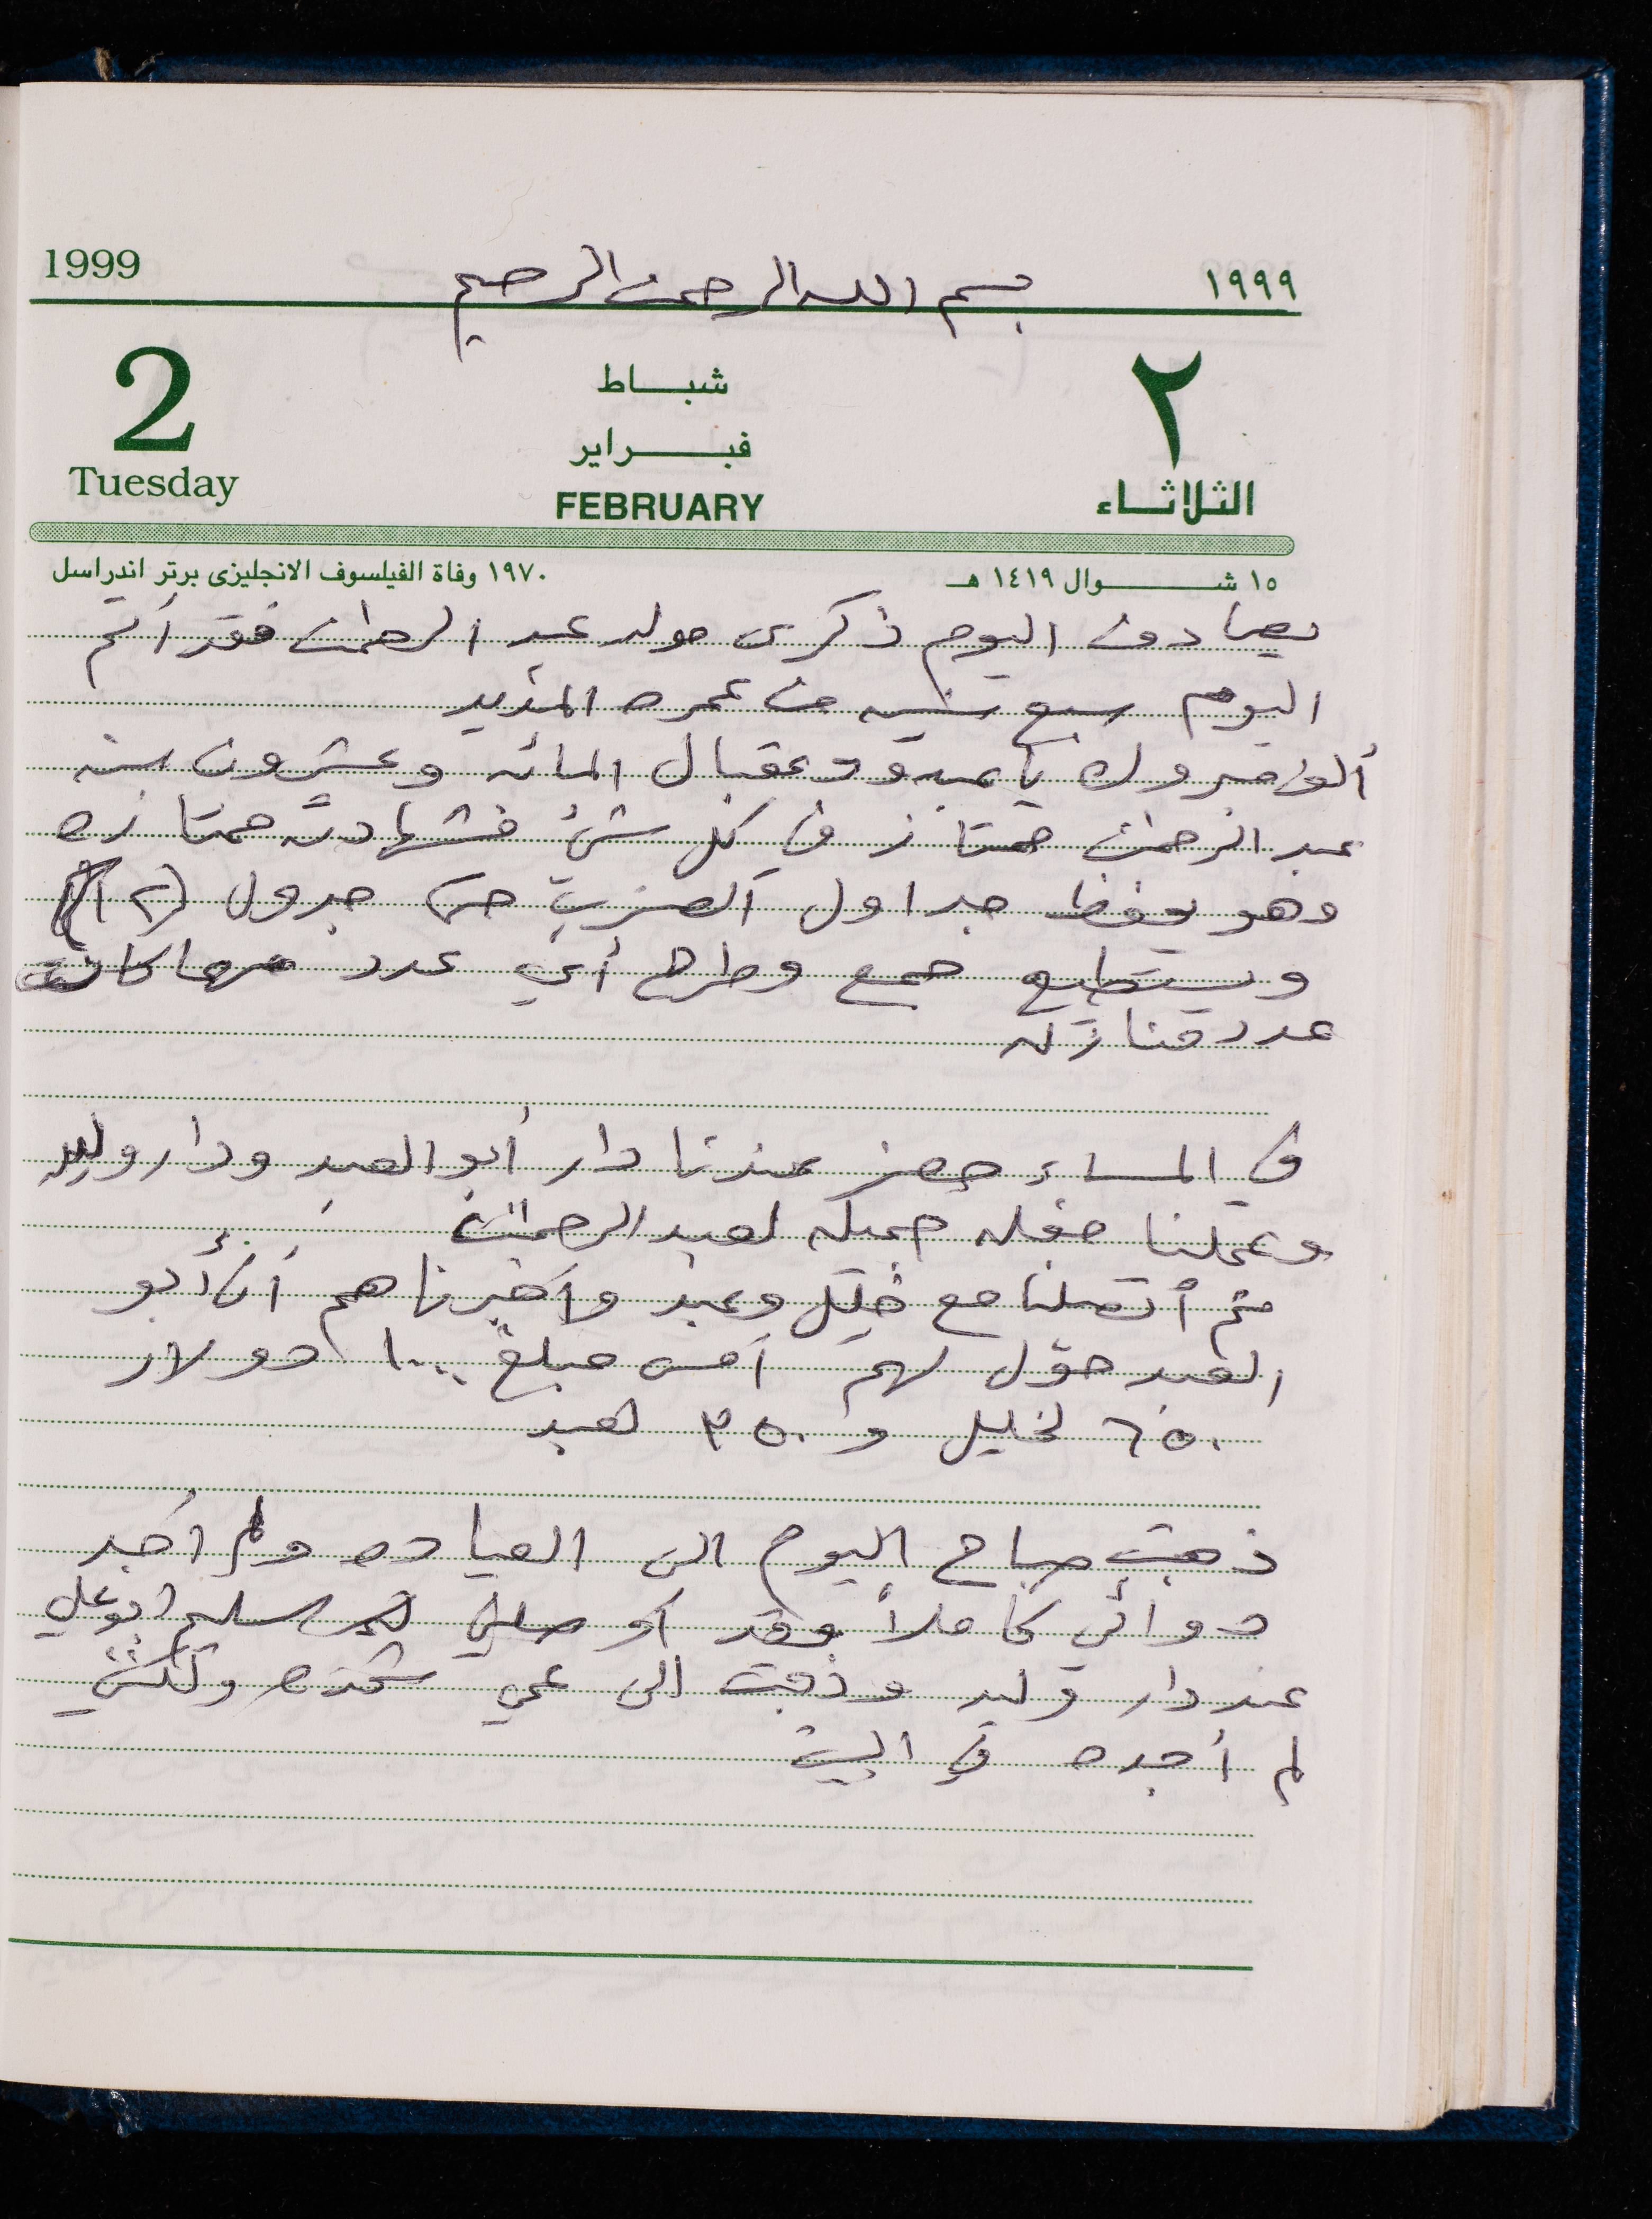 1999
بسم الله الرحمن الرحيم
١٩٩٩
2
شباط
٢
فبراير
Tuesday
FEBRUARY
الثلاثاء
١٥ شوال ١٤١٩ هـ
١٩٧٠ وفاة الفيلسوف الانجليزى برتر اندراسل
يصادف اليوم ذكرى مولد عبد الرحمن فقد أتم
اليوم سبع سنين من عمره المديد
ألف مبروك يا عبود وعقبال المائه وعشرون سنه
عبد الرحمن ممتاز في كل شئ فشهادته ممتازه
وهو يحفظ جداول الضرب حتى جدول (١٢)
ويستطيع جمع وطرح أي عدد مهما كانت
عدد منازله
في المساء حضر عندنا دار أبو العبد ودار وليد
وعملنا حفله جميله لعبد الرحمن
ثم أتصلنا مع خليل وعبد وأخبرناهم أن أبو
العبد حوّل لهم أمس مبلغ ١٠٠٠ دولار
٦٥٠ لخليل و ٣٥٠ لعبد
ذهبت صباح اليوم الى العياده ولم أجد
دوائي كاملاً وقد أوصلني سليم ابو علي
عند دار وليد وذهبت الى عمي شحده ولكنني
لم أجده في البيت